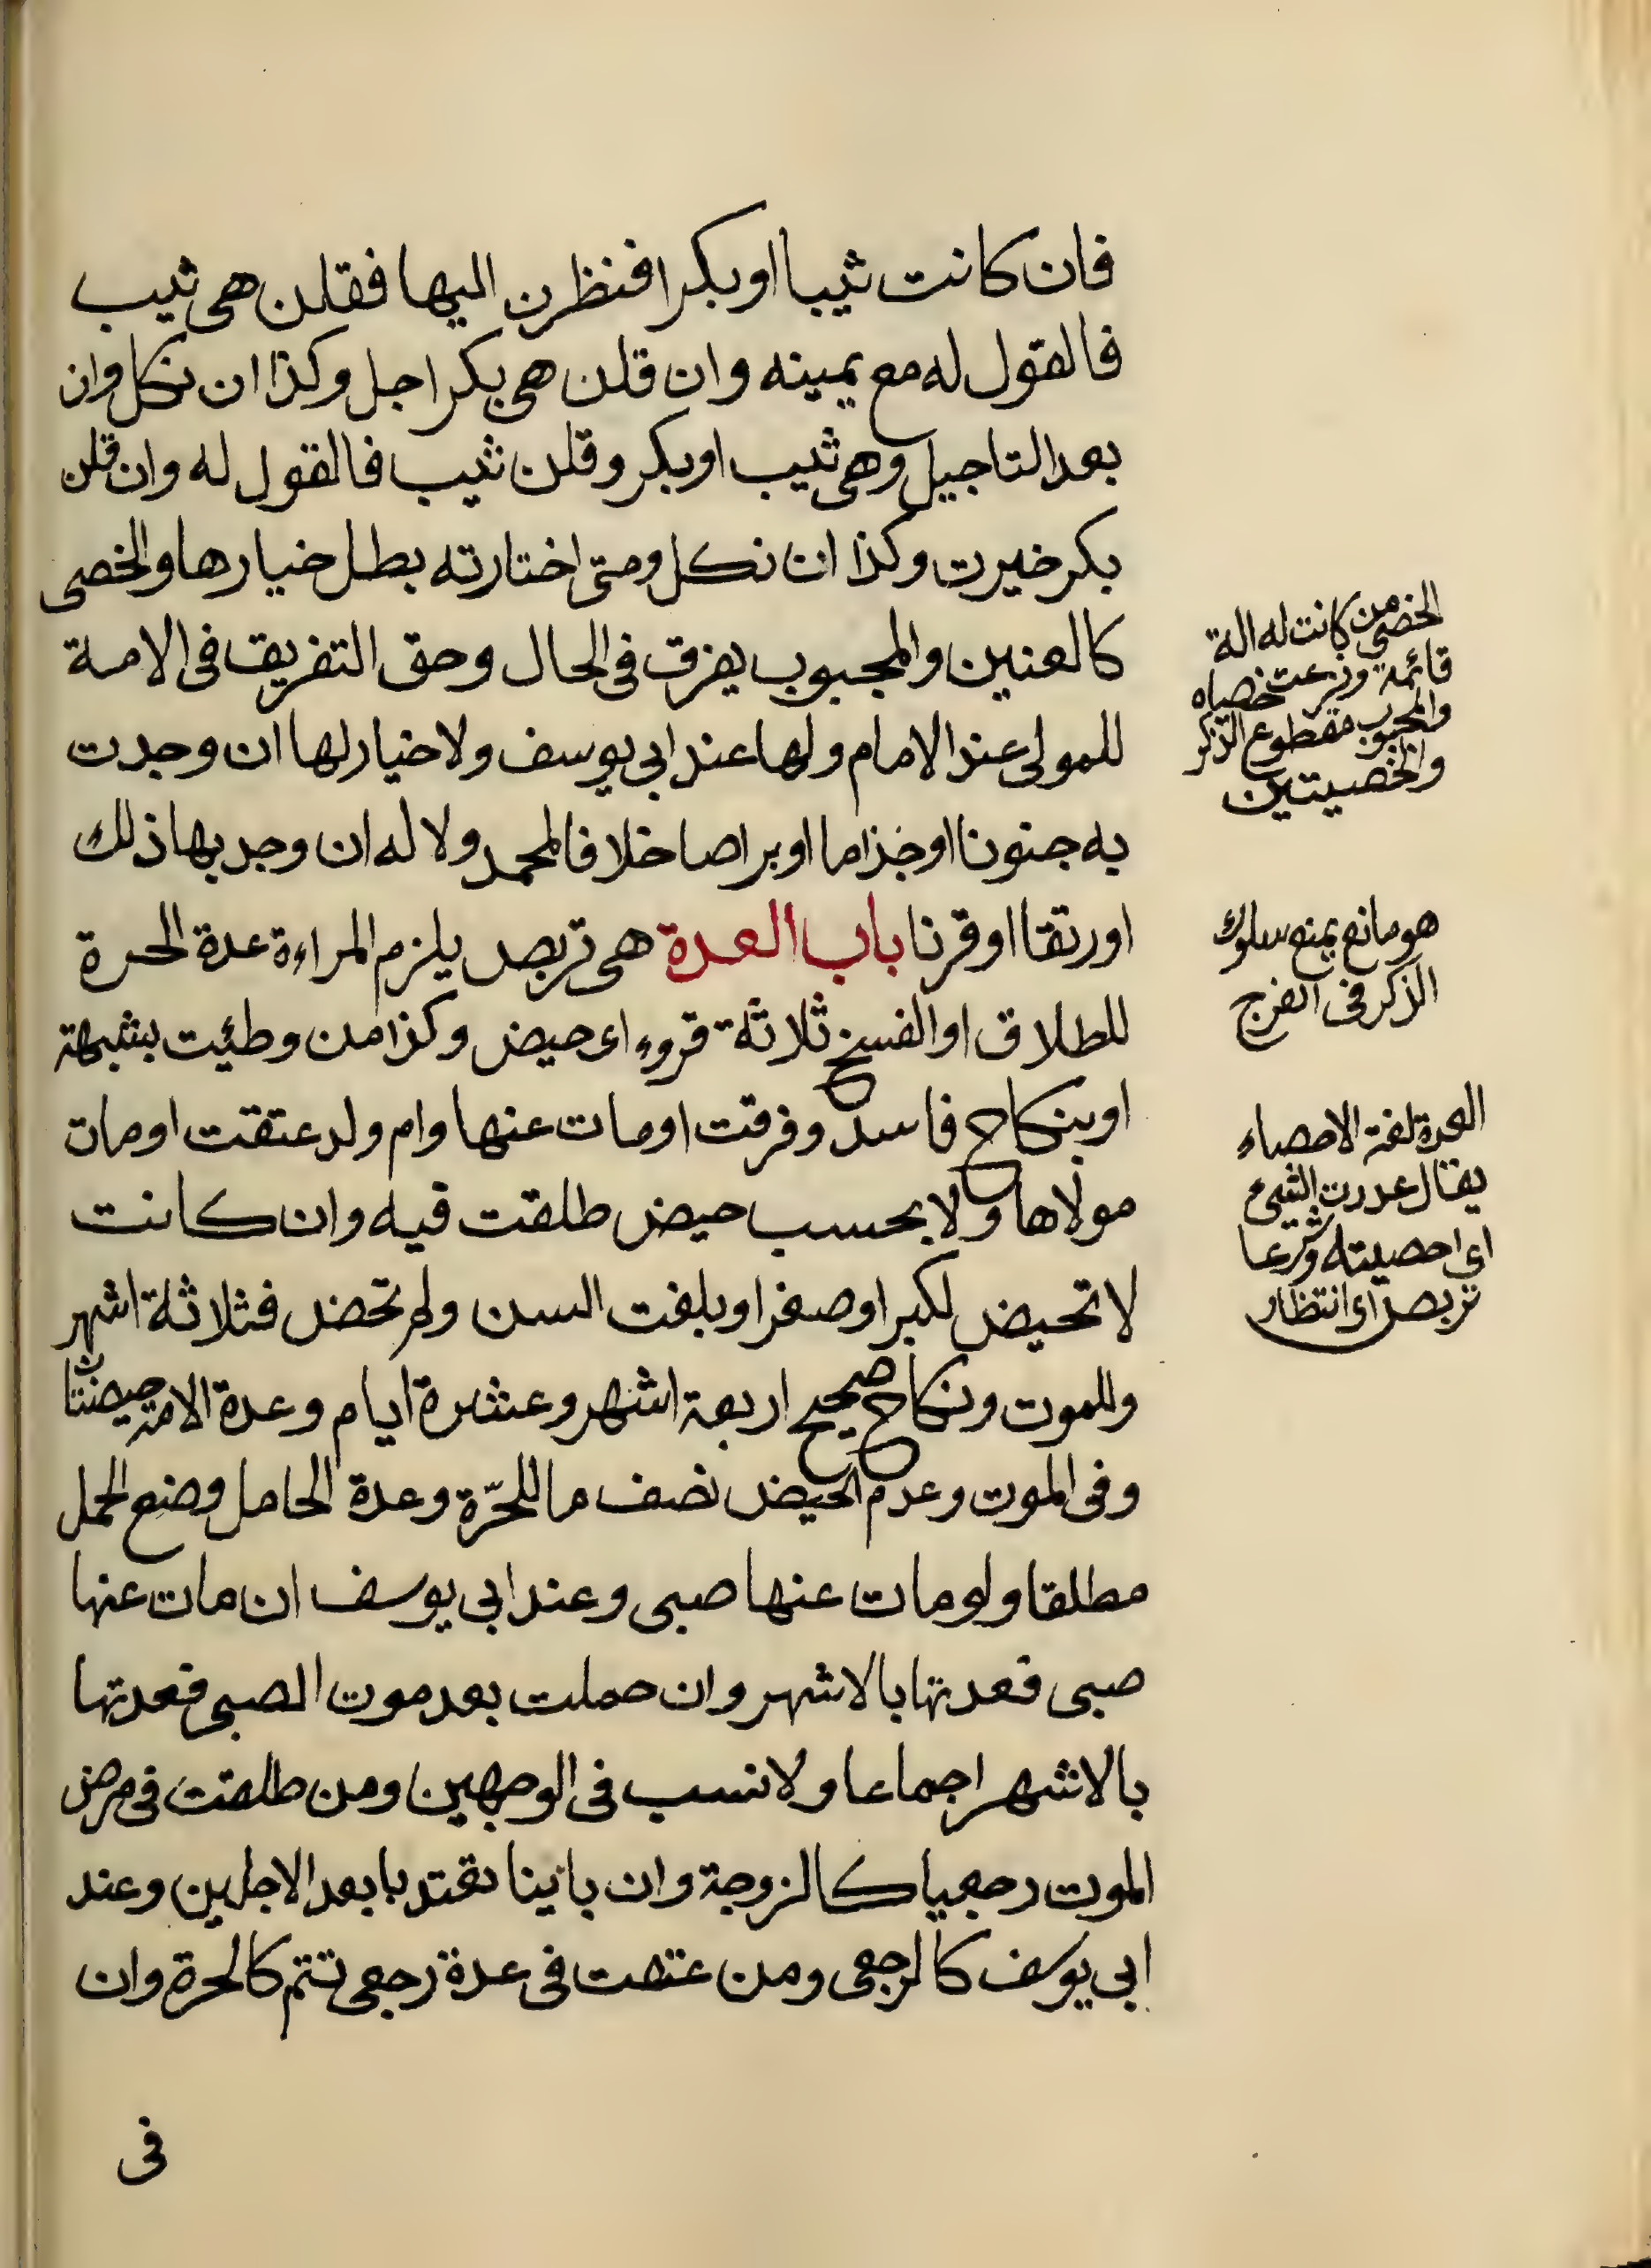 فان كانت ثيبا او بكرا فنظرن اليها فقلن هى ثيب
فالقول له مع يمينه وان قلن هى بكر اجل وكذا ان نكل وان
بعد التاجيل وهى ثيب او بكر وقلن ثيب فالقول له وان قلن
بكر خيرت وكذا ان نكل ومتى اختارته بطل خيارها والخصى
كالعنين والمجبوب يفرق فى الحال وحق التفريق فى الامة
للمولى عند الامام ولها عند ابى يوسف ولا خيار لها ان وجدت
به جنونا او جذاما او برصا خلافا لمحمد ولا له ان وجد بها ذلك
او رتقا او قرنا باب العدة هى تربص يلزم المراءة عدة الحرة
للطلاق او الفسخ ثلاثة قروء اى حيض وكذا من وطئت بشبهة
او بنكاح فاسد وفرقت او مات عنها وام ولد عتقت او مات
مولاها ولا يحسب حيض طلقت فيه وان كانت
لا تحيض لكبر او صغر او بلغت السن ولم تحض فثلاثة اشهر
وللموت ونكاح صحيح اربعة اشهر وعشرة ايام وعدة الامة حيضتان
وفى الموت وعدم الحيض نصف ما للحرّة وعدة الحامل وضع الحمل
مطلقا ولو مات عنها صبى وعند ابى يوسف ان مات عنها
صبى فعدتها بالاشهر وان حملت بعد موت الصبى فعدتها
بالاشهر اجماعا ولا نسب فى الوجهين ومن طلقت فى مرض
الموت رجعيا كالزوجة وان باينا تعتد بابعد الاجلين وعند
ابى يوسف كالرجعى ومن عتقت فى عدة رجعى تتم كالحرة وان
فى
الخصى من كانت له الة
قائمة ونزعت خصياه
والمجبوب مقطوع الذكر
والخصيتين
هو مانع يمنع سلوك
الذكر فى الفرج
العدة لغة الاحصاء
يقال عددت الشىء
اى احصيته وشرعا
تربص اى انتظار